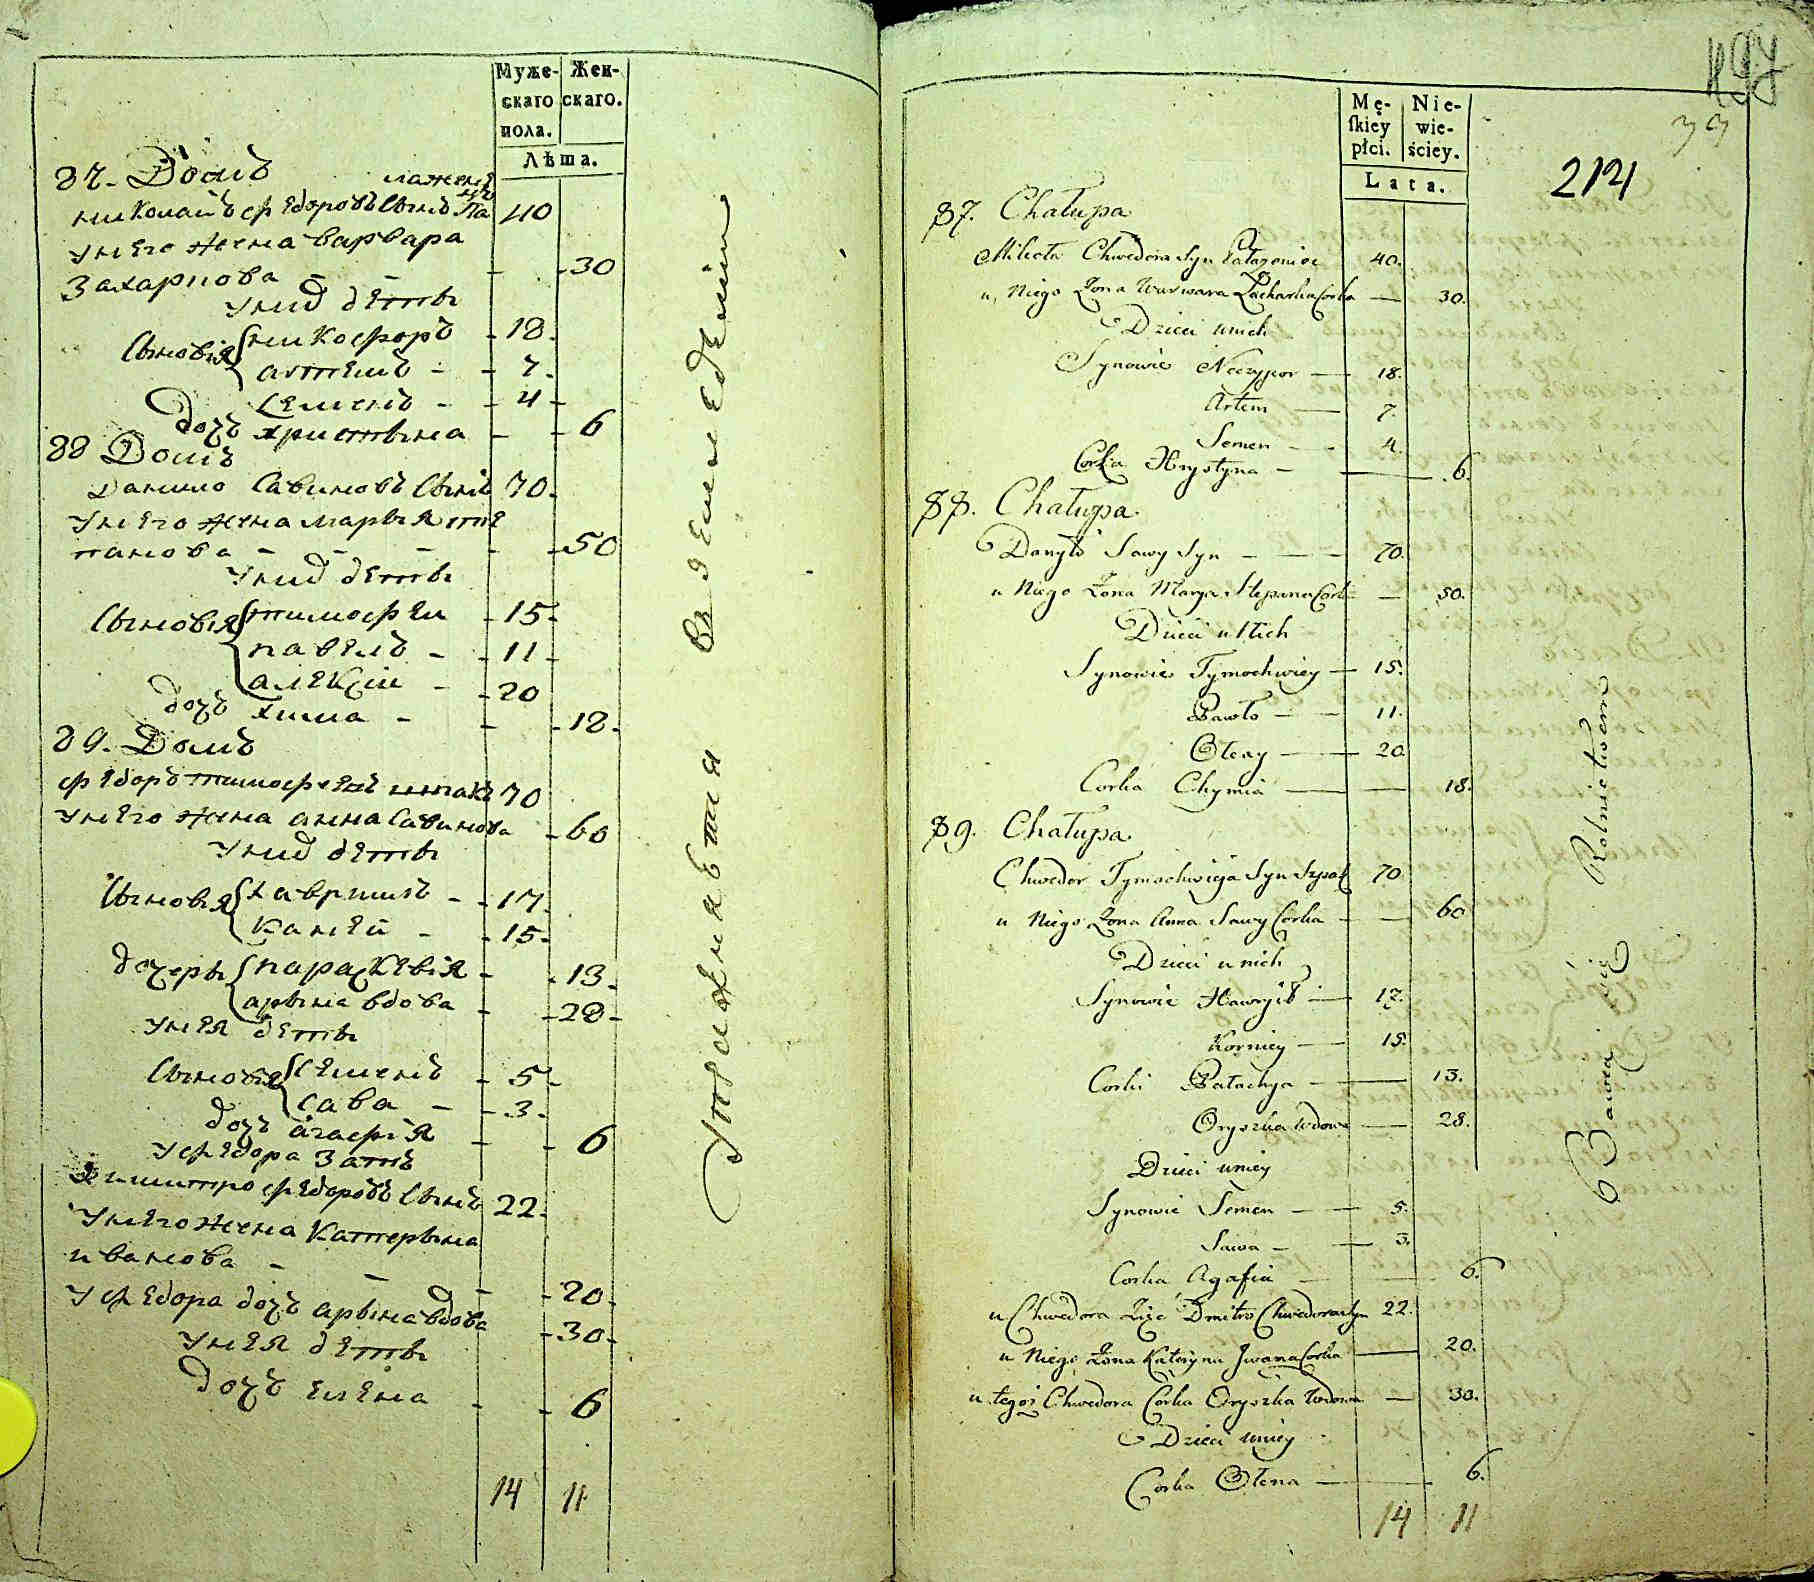 Муже-
скаго
пола.
Жен-
скаго.
Лѣта.
87. Домъ
Николай Федоровъ Сынъ Па 40
лажени
у него жена варвара
Захарпова - - - - 30
у нид дети
Сыновія никофоръ - 18
артемъ - - 7
Семенъ - - 4
дочъ христина - - 6
88 Домъ
Данило Савиновъ Сынъ 70
у него жена марія сте
панова - - - - 50
у нид дети
Сыновія тимофеи - 15
павелъ - - 11
алексіи - - 20
дочъ химиа - - 18
89. Домъ
федоръ тимофеевъ шпакъ 70
у него жена анна Савинова - 60
у нид дети
Сыновія гаврилъ - - 17
карней - - 15
дочери параскевія - - 13
арина вдова - - 28
у нея дети
Сыновія Семенъ - 5
сава - - 3
дочъ агафія - - 6
у федора зать
димитро федоровъ Сынъ 22
у него жена Катерина
иванова - - - - 20
у федора дочъ арина вдова - 30
у нея дети
дочъ елена - - 6
14 11
Упражняетъся в земледеліи
197
39
214
Mę-
ſkiey
płci.
Nie-
wie-
ściey.
Lata.
87. Chałupa
Mikoła Chwedora Syn Pałazeniec 40.
u Niego Żona Warwara Zacharka Corka — 30.
Dzieci u nich
Synowie Neczypor — 18.
Artem — 7.
Semen — 4.
Corka Hrystyna — 6.
88. Chałupa
Danyło Sawy Syn — 70.
u Niego Żona Marya Stepana Corka — 50.
Dzieci u Nich
Synowie Tymochwiey — 15.
Pawło — 11.
Olexy — 20.
Corka Chymia — 18.
89. Chałupa
Chwedor Tymochwieja Syn Szpak 70.
u Niego Żona Anna Sawy Corka — 60
Dzieci u nich
Synowie Hawryło — 17.
Korniey — 15.
Corki Pałachya — 13.
Oryszka Wdowa — 28.
Dzieci u niey
Synowie Semen — 5.
Sawa — 3.
Corka Agafia — 6.
u Chwedora Zięć Dmitro Chwedora Syn 22.
u Niego Żona Kateryna Jwana Corka — 20.
u tegoż Chwedora Córka Oryszka Wdowa — 30.
Dzieci u niey
Corka Ołena — 6.
14 11
Bawią się Rolnictwem